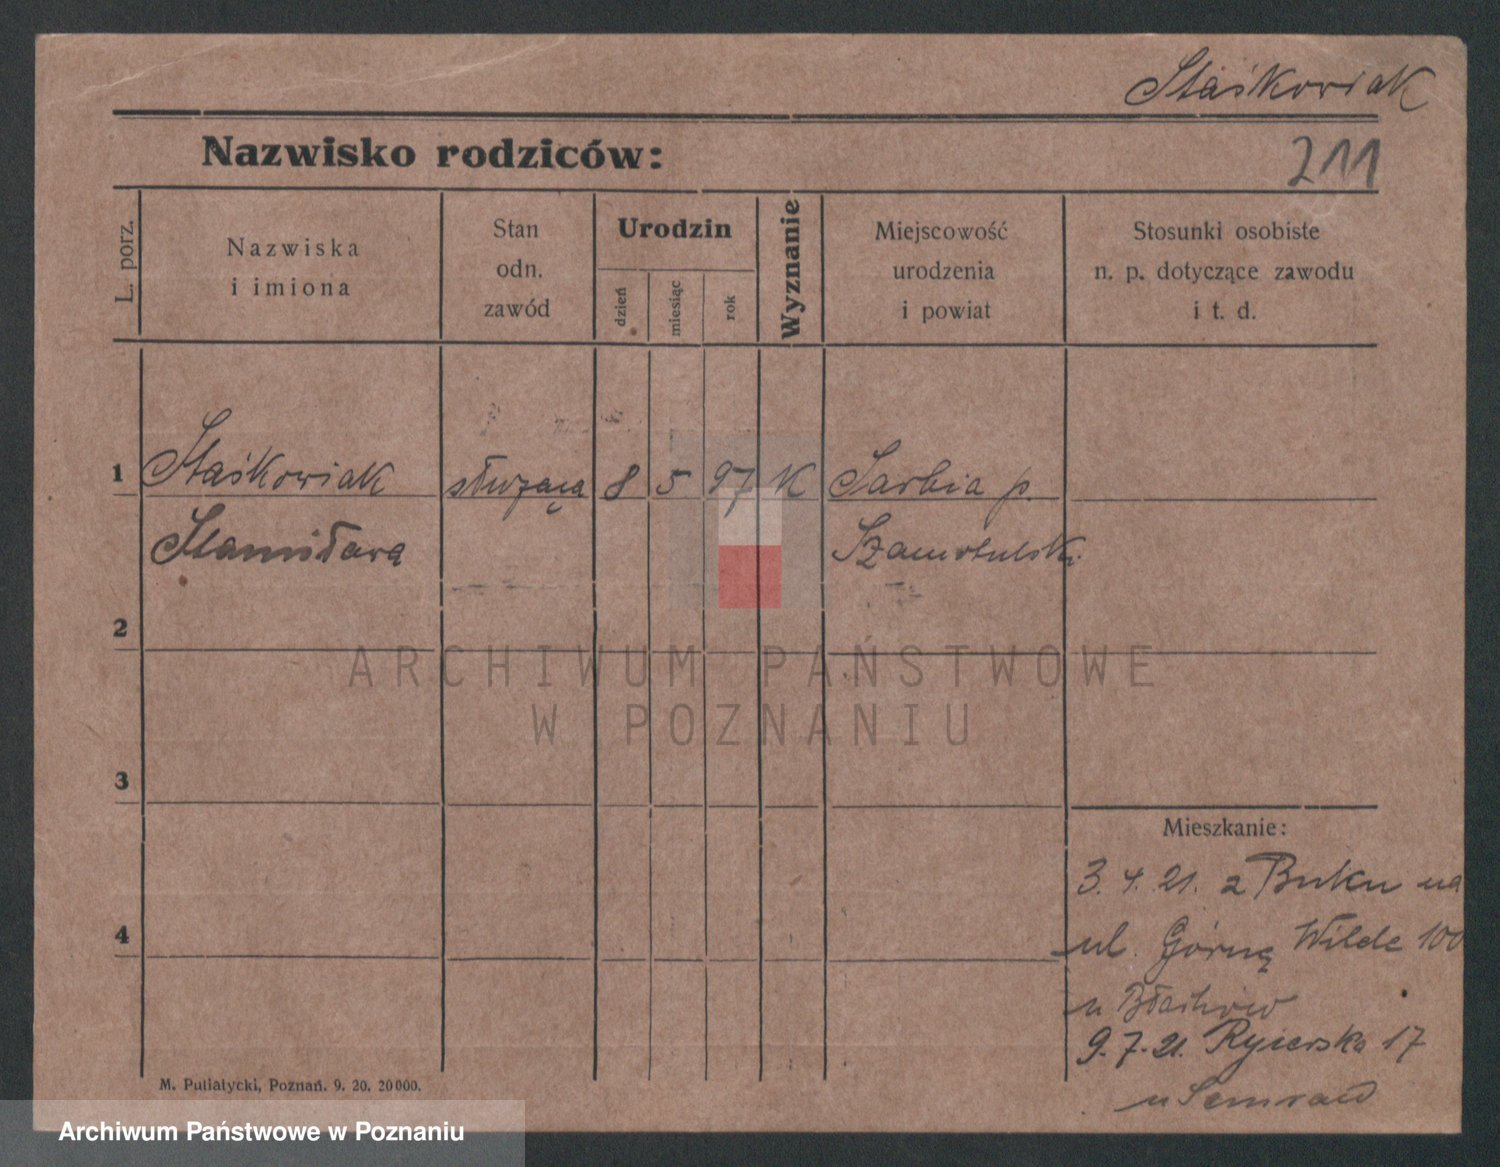 Staśkowiak
Nazwisko rodziców:
211
L. porz.
Nazwiska
i imiona
Stan
odn.
zawód
Urodzin
dzień
miesiąc
rok
Wyznanie
Miejscowość
urodzenia
i powiat
Stosunki osobiste
n. p. dotyczące zawodu
i t. d.
1
Staśkowiak
służąca
8
5
97
K
Sarbia p.
Stanisława
Szamotulski
2
ARCHIWUM PAŃSTWOWE
W POZNANIU
3
Mieszkanie:
3. 4. 21. z Buku na
4
ul. Górną Wildę 100
u
9. 7. 21. Rycerska 17
u
M. Putiatycki, Poznań. 9. 20. 20000.
Archiwum Państwowe w Poznaniu